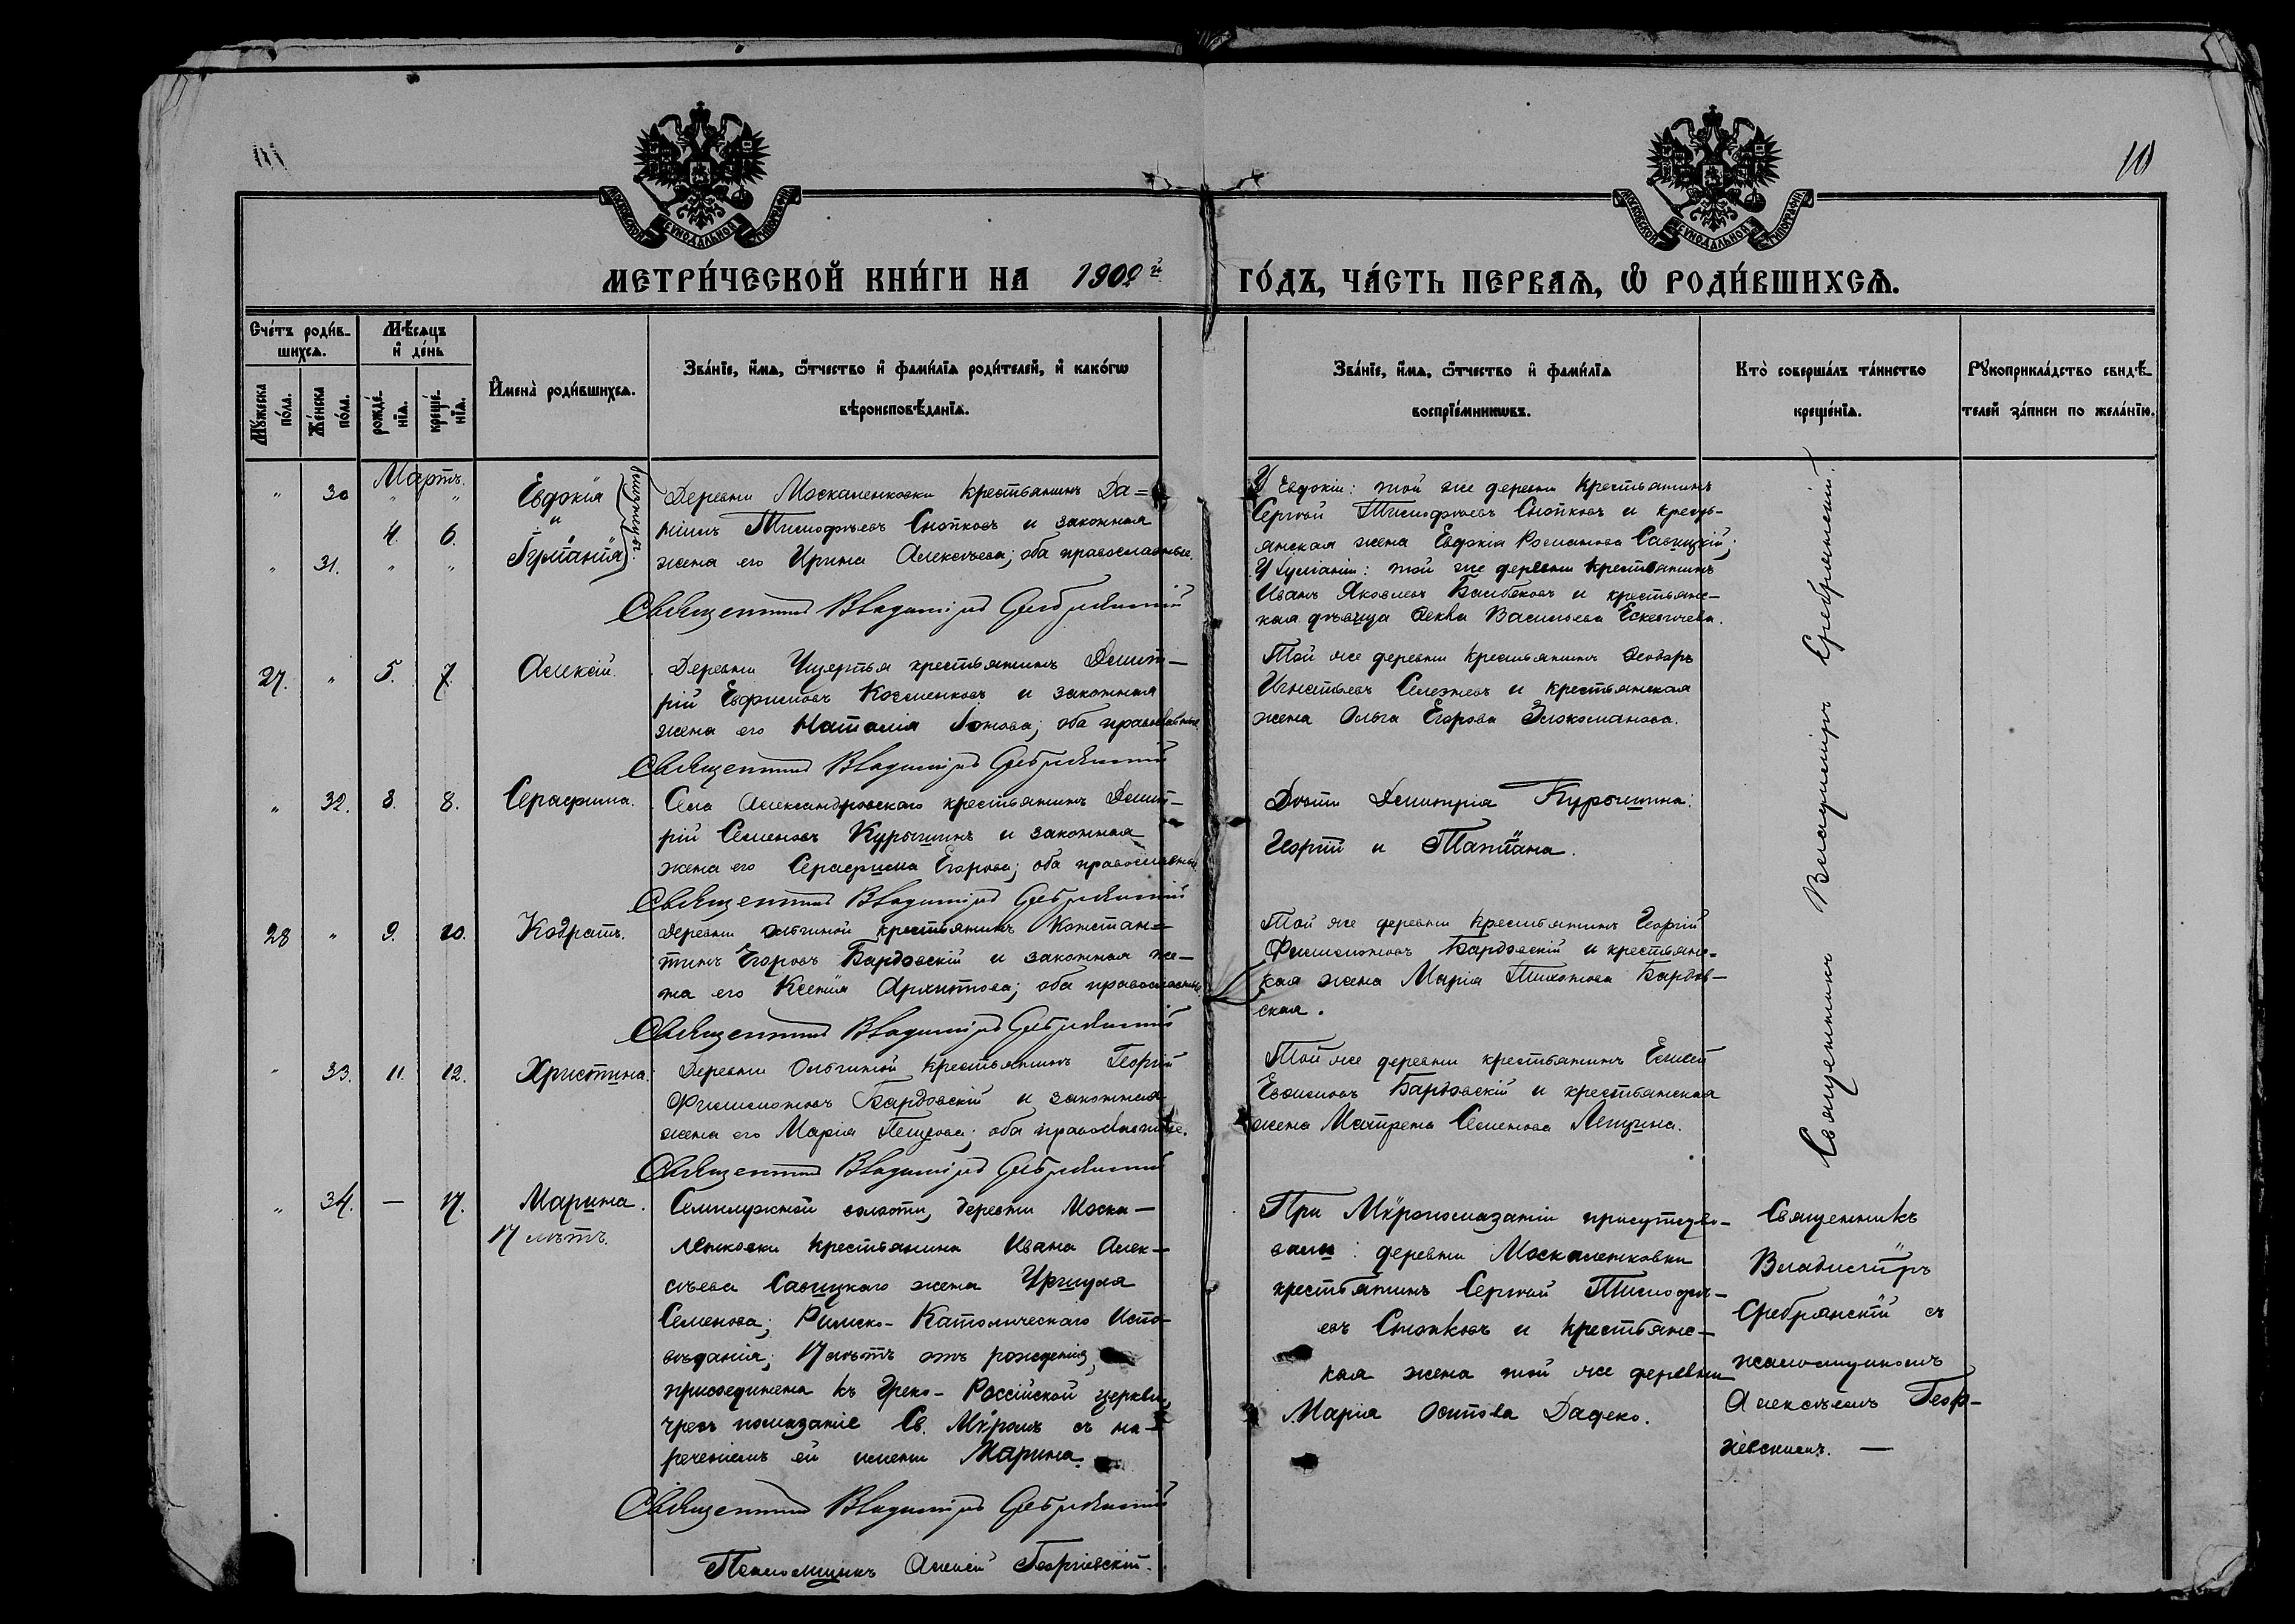 10
МОСКОВСКОЙ СУНОДАЛЬНОЙ ТИПОГРАФІИ
МОСКОВСКОЙ СУНОДАЛЬНОЙ ТИПОГРАФІИ
МЕТРИ́ЧЕСКОЙ КНИ́ГИ НА 1902й ГО́ДЪ, ЧА́СТЬ ПЕРВАѦ, Ѽ РОДИ́ВШИХСѦ.
Счётъ роди́в-
шихсѧ.
Мѣ́сяцъ
и҆ де́нь
Мꙋ́жеска
по́ла.
Же́нска
по́ла.
рожде́-
нїѧ.
креще́-
нїѧ.
И҆мена̀ роди́вшихсѧ.
Зва́нїе, и҆́мѧ, ѻ҆́тчество и҆ фами́лїѧ роди́телей, и҆ како́гѡ
вѣроисповѣ́данїѧ.
Зва́нїе, и҆́мѧ, ѻ҆́тчество и҆ фами́лїѧ
воспрїе́мникѡвъ.
Кто̀ соверша́лъ та́инство
креще́нїѧ.
Рꙋкоприкла́дство свидѣ́-
телей за́писи по жела́нїю.
Мартъ.
" 30 " " Евдокія
" 4. 6.
" 31. " "
близнецы.
Деревни Москаленковки крестьянинъ Да=
ніилъ Тимофѣевъ Снопковъ и законная
жена его Ирина Алексѣева; оба православные.
Священникъ Владиміръ Сребрянскій
У Евдокіи: той же деревни крестьянинъ
Сергѣй Тимофѣевъ Снопковъ и кресть-
янская жена Евдокія Романова Савицкій;
той же деревни крестьянинъ
Иванъ Яковлевъ и крестьянс-
кая дѣвица Ѳекла Васильева
27. " 5. 7. Алексій.
Деревни крестьянинъ Димит-
рій Евфимовъ и законная
жена его Наталія Іонова; оба православные.
Священникъ Владиміръ Сребрянскій
Той же деревни крестьянинъ Ѳеодоръ
Игнатьевъ Селезневъ и крестьянская
жена Ольга Егорова
" 32. 8. 8. Серафима.
Села Александровскаго крестьянинъ Димит-
рій Семеновъ Курышинъ и законная
жена его Серафима Егорова; оба православные.
Священникъ Владиміръ Сребрянскій
Дѣти Димитрія Курышина:
Георгій и Татіана.
28 " 9. 10. Кодратъ.
Деревни Ольгиной крестьянинъ Констан=
тинъ Егоровъ Бардовскій и законная же-
на его Ксенія Архипова; оба православные.
Священникъ Владиміръ Сребрянскій
Той же деревни крестьянинъ Георгій
Филимоновъ Бардовскій и крестьянс-
кая жена Марія Тихонова Бардов-
ская.
" 33. 11. 12. Христина.
Деревни Ольгиной крестьянинъ Георгій
Филимоновъ Бардовскій и законная
жена его Марія Петрова; оба православные.
Священникъ Владиміръ Сребрянскій
Той же деревни крестьянинъ Елисей
Евфимовъ Бардовскій и крестьянская
жена Матрена Семенова
Священникъ Владиміръ Сребрянскій.
" 34. — 17. Марина.
17 лѣтъ.
Семилужной волости, деревни Моска-
ленковки крестьянина Ивана Алек-
сѣева Савицкаго жена Уршуля
Семенова; Римско-Католическаго Испо-
вѣданія; 17 лѣтъ отъ рожденія,
присоединена къ Греко-Россійской церкви,
чрезъ помазаніе Св. Мѵромъ съ на-
реченіемъ ей имени Марина.
Священникъ Владиміръ Сребрянскій
Псаломщикъ Алексій Георгіевскій.
При Мѵропомазаніи присутство-
вали: деревни Москаленковки
крестьянинъ Сергѣй Тимофѣ-
евъ Снопковъ и крестьянс-
кая жена той же деревни
Марія Осипова Дадеко.
Священникъ
Владиміръ
Сребрянскій съ
псаломщикомъ
Алексѣемъ Геор-
гіевскимъ. —